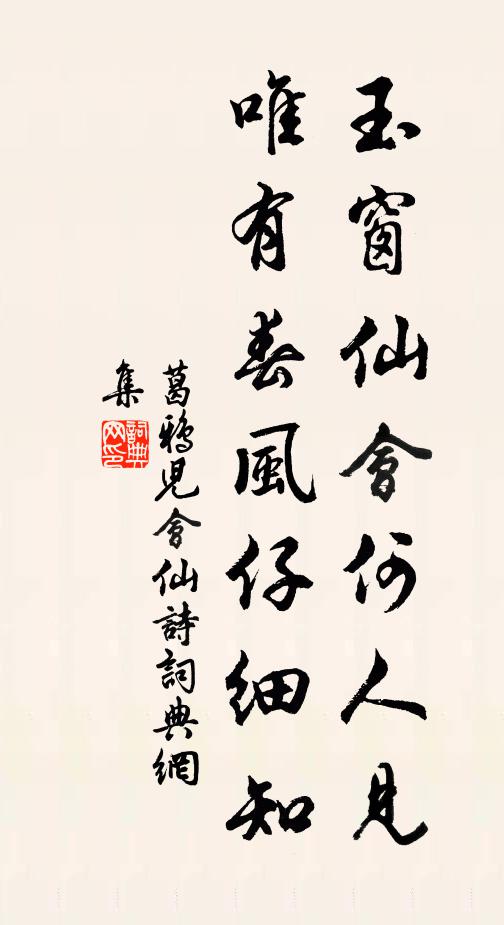 玉窗仙會何人見
唯有春風仔細知
葛鴉兒會仙詩詞典網
集
詞典網印